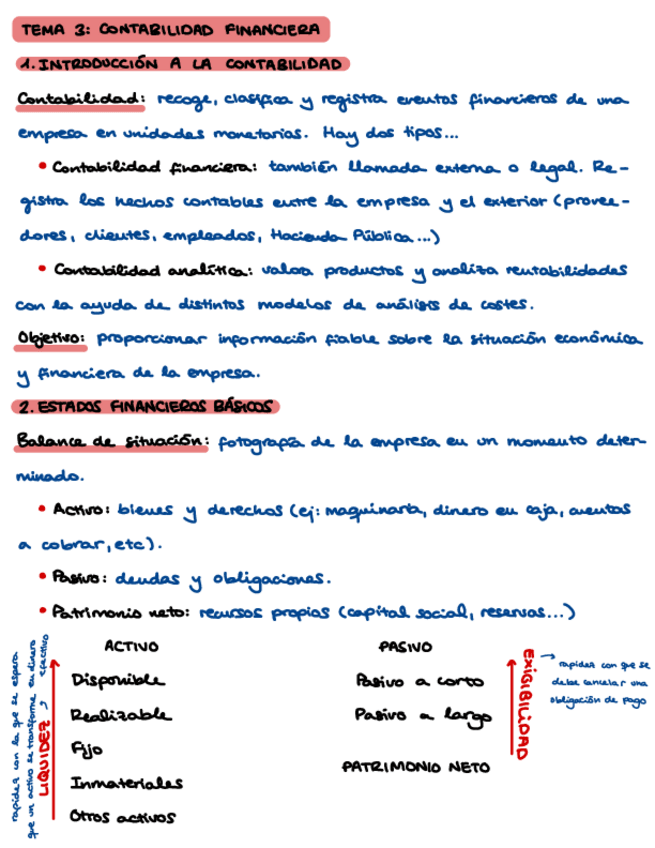 TEMA 3: CONTABILIDAD FINANCIERA
1. INTRODUCCIÓN A LA CONTABILIDAD
Contabilidad: recoge, clasifica y registra eventos financieros de una
empresa en unidades monetarias. Hay dos tipos...
• Contabilidad financiera: también llamada externa o legal. Re-
gistra los hechos contables entre la empresa y el exterior (provee-
dores, clientes, empleados, Hacienda Pública...)
• Contabilidad analítica: valora productos y analiza rentabilidades
con la ayuda de distintos modelos de análisis de costes.
Objetivo: proporcionar información fiable sobre la situación económica
y financiera de la empresa.
2. ESTADOS FINANCIEROS BÁSICOS
Balance de situación: fotografía de la empresa en un momento deter-
minado.
• Activo: bienes y derechos (ej: maquinaria, dinero en caja, cuentas
a cobrar, etc).
• Pasivo: deudas y obligaciones.
• Patrimonio neto: recursos propios (capital social, reservas...)
ACTIVO
Disponible
Realizable
Fijo
Inmateriales
Otros activos
LIQUIDEZ
rapidez con la que se espera
que un activo se transforme en dinero
efectivo
PASIVO
Pasivo a corto
Pasivo a largo
PATRIMONIO NETO
EXIGIBILIDAD
rapidez con que se
debe cancelar una
obligación de pago